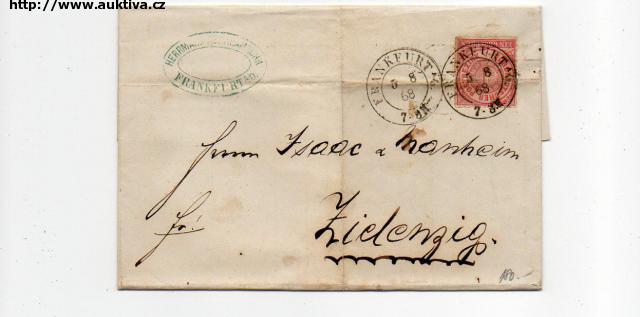 http://www.auktiva.cz
HERRMANN
FRANKFURT a/O.
FRANKFURT a/O.
5 8
68
7-8N
FRANKFURT a/O.
5 8
68
7-8N
Herrn Isaac a Manheim
fr!
Zielenzig.
180.-